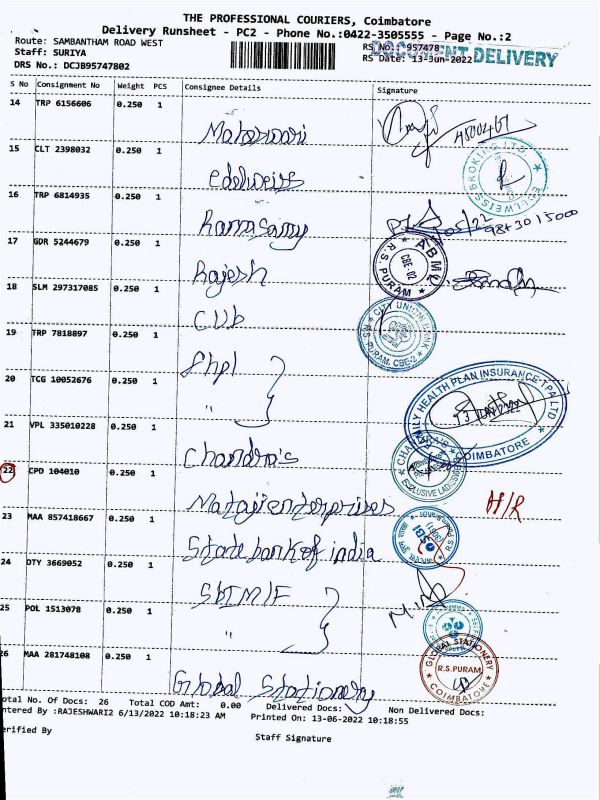 THE PROFESSIONAL COURIERS, Coimbatore
Delivery Runsheet - PC2 - Phone No.:0422-3505555 - Page No.:2
Route: SAMBANTHAM ROAD WEST
RS No.: 957478
Staff: SURIYA
DOCUMENT DELIVERY
RS Date: 13-Jun-2022
DRS No.: DCJB95747802
S No Consignment No Weight PCS Consignee Details Signature
14 TRP 6156606 0.250 1
Maheswari 4500461
15 CLT 2398032 0.250 1
edelweiss
EDELWEISS BROKING LTD
16 TRP 6814935 0.250 1
Ramsamy
9843015000
17 GDR 5244679 0.250 1
Rajesh
ABML
CBE.02
R.S. PURAM
18 SLM 297317085 0.250 1
CUb
CITY UNION BANK
R.S. PURAM, CBE-2
19 TRP 7818897 0.250 1
fhpl
20 TCG 10052676 0.250 1
"
FAMILY HEALTH PLAN INSURANCE TPA LTD
COIMBATORE
21 VPL 335010228 0.250 1
Chandra's
EXCLUSIVE LADIES
22 CPD 104010 0.250 1
Matajienterprises
23 MAA 857418667 0.250 1
State bank of india
24 DTY 3669052 0.250 1
SBIMF
25 POL 1513078 0.250 1
"
26 MAA 281748108 0.250 1
Global Stationery
GLOBAL STATIONERY
R.S.PURAM
COIMBATORE
otal No. Of Docs: 26 Total COD Amt: 0.00 Delivered Docs: Non Delivered Docs:
ntered By :RAJESHWARI2 6/13/2022 10:18:23 AM Printed On: 13-06-2022 10:18:55
erified By
Staff Signature